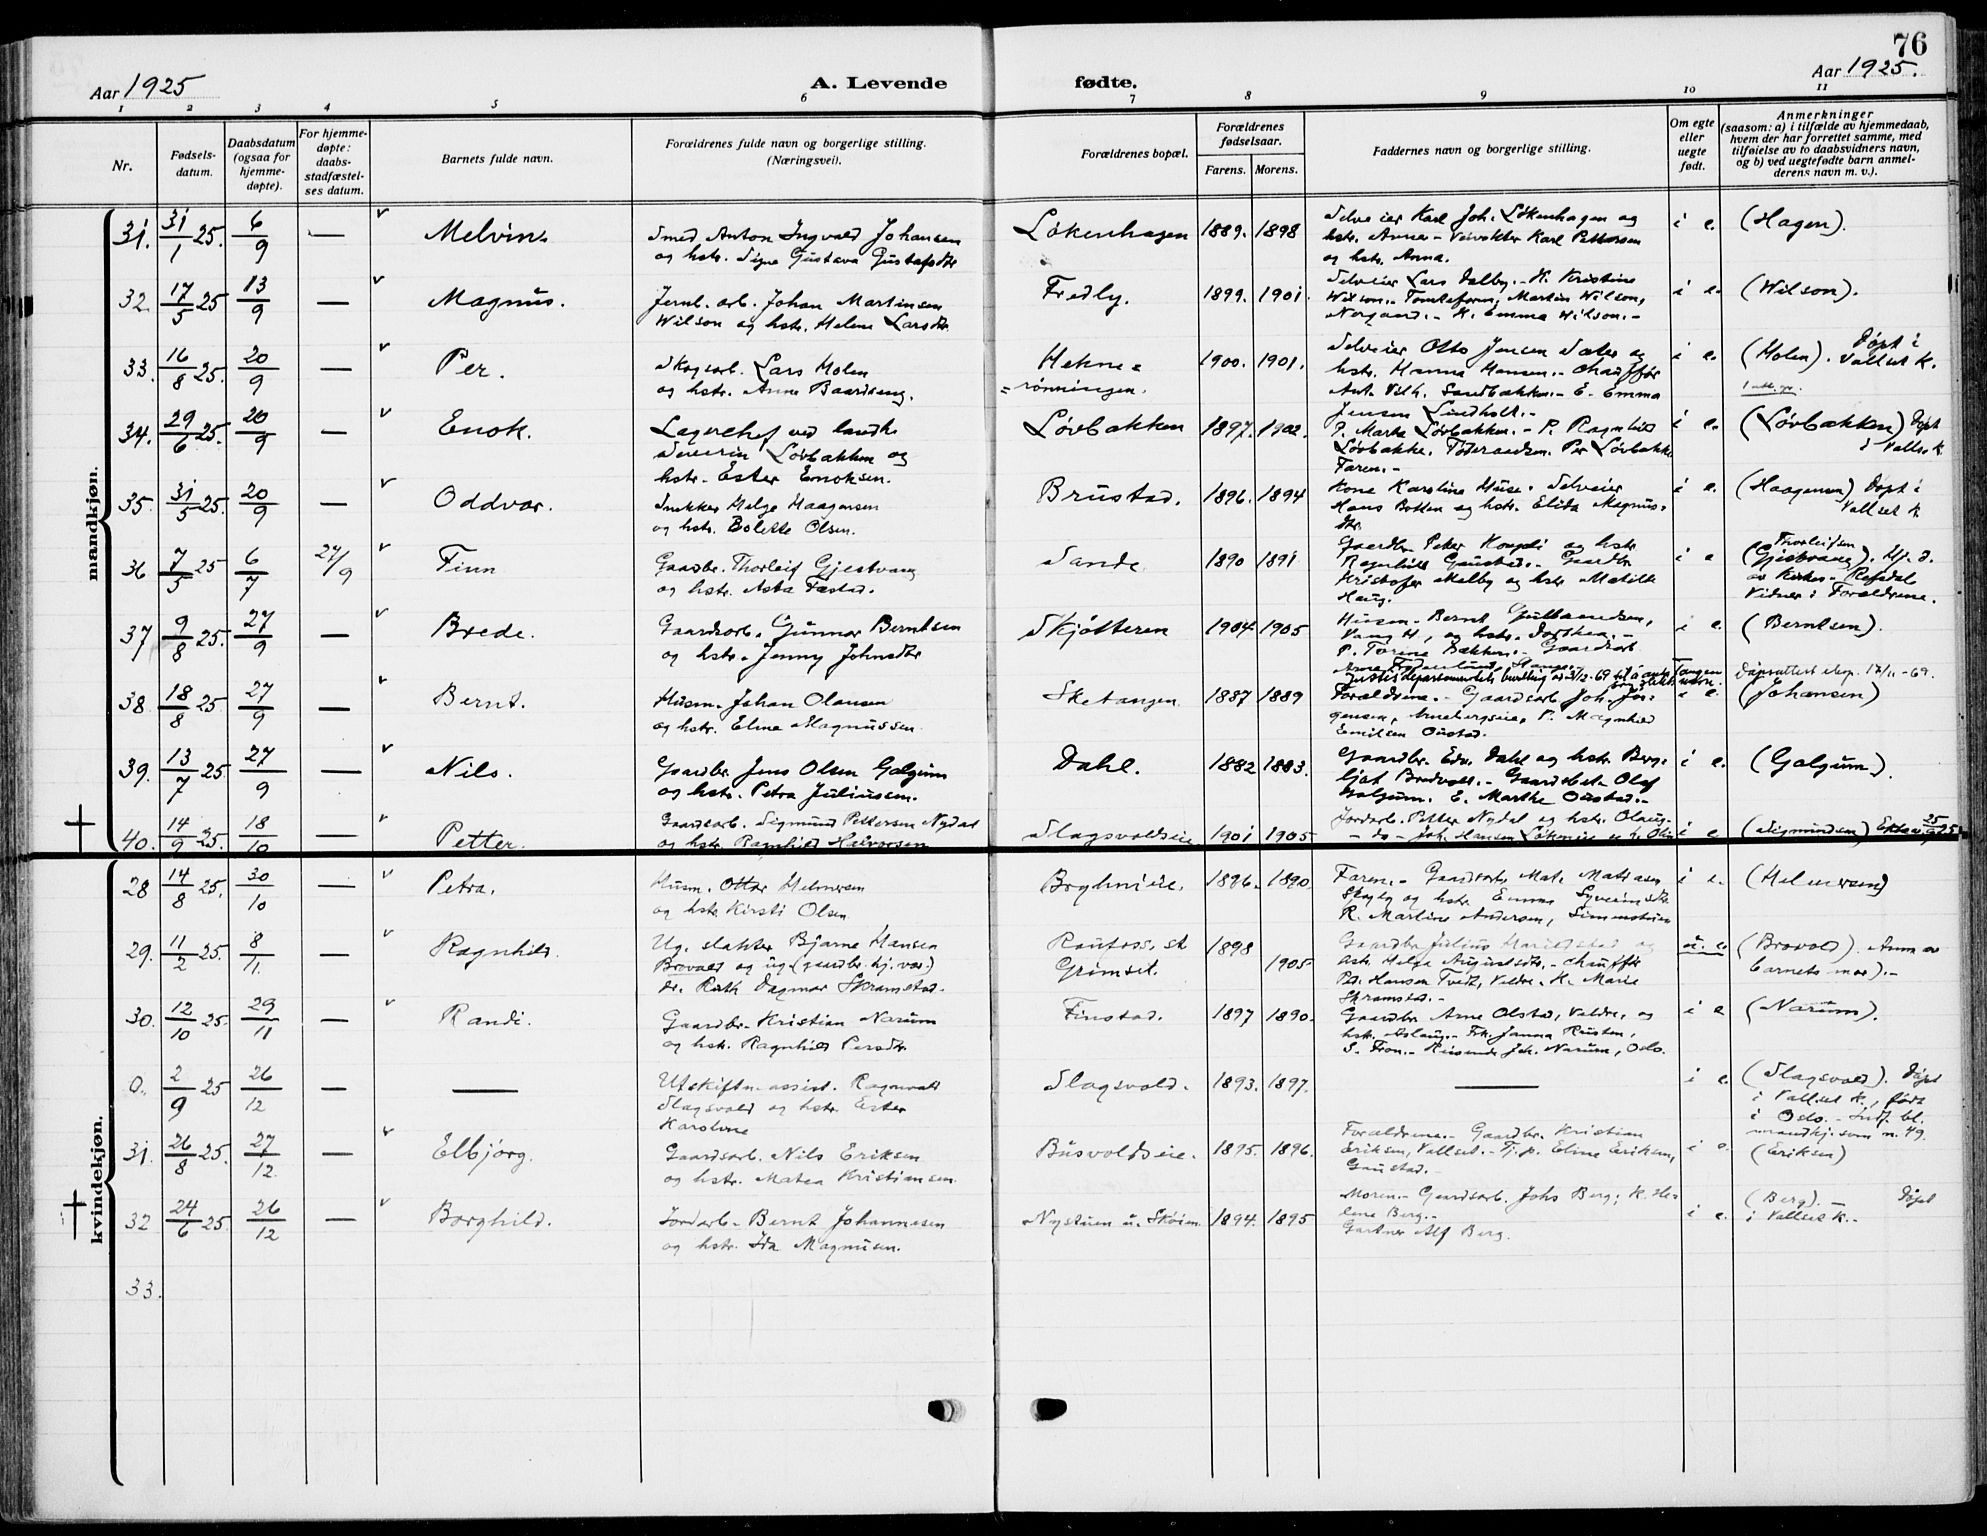 76
Aar 1925
A. Levende
fødte.
Aar 1925.
1 2 3 4 5 6 7 8 9 10 11
Nr.
Fødsels-
datum.
Daabsdatum
(ogsaa for
hjemme-
døpte).
For hjemme-
døpte:
daabs-
stadfæstel-
ses datum.
Barnets fulde navn.
Forældrenes fulde navn og borgerlige stilling.
(Næringsvei).
Forældrenes bopæl.
Forældrenes
fødselsaar.
Farens. Morens.
Faddernes navn og borgerlige stilling.
Om egte
eller
uegte
født.
Anmerkninger
(saasom: a) i tilfælde av hjemmedaab,
hvem der har forrettet samme, med
tilføielse av to daabsvidners navn,
og b) ved uegtefødte barn anmel-
derens navn m. v.).
mandkjøn.
31. 31/1 25. 6/9 — Melvin.
Smed Anton Ingvald Johansen
og hstr. Signe Gustava Gustafsdtr
Løkenhagen 1889. 1898
Selveier Karl Joh. Løkenhagen og
hstr. Anna – Veivokter Karl Pettersen
og hstr. Anna.
i e. (Hagen).
32. 17/5 25 13/9 — Magnus.
Jernb. arb. Johan Martinsen
Wilson og hstr. Helene Larsdtr.
Fredly. 1899. 1901.
Selveier Lars Dalby. – K. Kristine
Wilson. – Tomteform. Martin Wilson,
Norgaard. – K. Emma Wilson. –
i e. (Wilson).
33. 16/8 25. 20/9 — Per.
Skogsarb. Lars Holen
og hstr. Anne Baardseng.
Hekne=
=rønningen. 1900. 1901.
Selveier Otto Jensen Sæter og
hstr. Hanna Hansen. – Chauffør
Ant. Vilh. Sandbakken. – E. Emma
Jensen Lindholt. –
i e. (Holen). Døpt i
Vallset K.
34. 29/6 25. 20/9 — Enok.
Lagerchef ved landh.
Severin Løvbakken og
hstr. Ester Enoksen.
Løvbakken 1897. 1902.
P. Marta Løvbakken. – P. Ragnhild
Løvbakke. Per Løvbakke
Faren. –
i e. (Løvbakken) Døpt
i Valls. K
35. 31/5 25. 20/9 — Oddvar.
Snekker Helge Haagensen
og hstr. Bolette Olsen.
Brustad. 1896. 1894
Kone Karoline Huse. Selveier
Hans Botten og hstr. Elida Magnus-
dtr.
i e. (Haagensen) Døpt i
Vallset K.
36 7/5 25 6/7 27/9 Finn
Gaardbr. Thorleif Gjestvang
og hstr. Asta Fæstad.
Sande 1890 1891
Gaardbr. Peter og hstr
Ragnhild Gaustad. – Gaardbr
Kristofer Melby og hstr. Matilde
Haug.
i e Thorleifsen
(Gjestvang). Hj. d.
av Refsdal
Vidner: Forældrene.
37 9/8 25. 27/9 — Brede.
Gaardsarb. Gunnar Berntsen
og hstr. Jenny Johnsdtr
Skjøtteren 1904. 1905
Husm. Bernt Gulbrandsen,
Vang H, og hstr. Dorthea. –
P. Torine Bakken. – Gaardsarb.
i e. (Berntsen).
Tangen
navn. Dåpsattest eksp. 17/11-69.
38. 18/8 25. 27/9 — Bernt.
Husm. Johan Olausen
og hstr. Eline Magnussen
Sketangen 1887 1889
Forældrene. – Gaardsarb. Joh. Jør-
gensen, Arnebergseie, P. Magnhild
Emilsen Oustad.
i e. (Johansen)
39. 13/7 25. 27/9 — Nils.
Gaardbr. Jens Olsen Galgum
og hstr. Petra Juliussen.
Dahl. 1882 1883.
Gaardbr. Edv. Dahl og hstr. Berg-
ljot Bredvold. – Gaardsbest. Olaf
Galgum. E. Marthe Oustad. –
i e. (Galgum).
40. 14/9 25. 18/10 — Petter.
Gaardsarb. Sigmund Pettersen Nydal
og hstr. Ragnhild Halvorsen
Slagsvoldseie 1901 1905.
Jordarb. Petter Nydal og hstr. Olaug –
– do – Joh. Hansen
i e (Sigmundsen)
kvindekjøn.
28 14/8 25. 30/10 — Petra.
Husm. Ottar Helmersen
og hstr. Kirsti Olsen.
1896. 1890.
Faren. – Gaardsarb. Mat. Matiasen
Skogly og hstr. Emma Syverinsdtr.
R. Martine Andersen, Simenstuen
i e. (Helmersen)
29. 11/2 25. 8/11. — Ragnhild.
Ug. slakter Bjarne Hansen
Brovold og ug. (gaardbr. hj. vær.)
dr. Ruth Dagmar Skramstad.
Raufoss st
Grimset. 1898 1905
Gaardbr. Julius og
hstr. Helga Augustsdtr. – Chauffør
Ped. Hansen Tvedt, Veldre. – K. Marie
Skramstad. –
u. e (Brovold). Anm. av
barnets mor). –
30. 12/10 25. 29/11 — Randi.
Gaardbr. Kristian Narum
og hstr. Ragnhild Persdtr.
Finstad. 1897 1890.
Gaardbr. Arne Olstad, Veldre, og
hstr. Aslaug. – Frk. Janna Kusten,
S. Fron. – Reisende Joh. Narum, Oslo.
i e (Narum).
0. 2/9 25 26/12 — —
Utskiftn. assist. Ragnvald
Slagsvold og hstr. Ester
Karoline
Slagsvold. 1893. 1897. —
i e. (Slagsvold). Døpt
i Vallset K., født
i Oslo. – Indf. bl.
mandkj. som n. 49.
31. 26/8 25. 27/12. — Elbjørg.
Gaardsarb. Nils Eriksen
og hstr. Matea Kristiansen.
Busvoldseie. 1895. 1896.
Forældrene. – Gaardbr. Kristian
Eriksen, Vallset. – Tj. p. Eline Eriksen,
Gaustad. –
i e. (Eriksen)
32 24/6 25. 26/12 — Borghild.
Jordarb. Bernt Johannesen
og hstr. Ida Magnusen.
Nystuen u. Skøien 1894. 1895
Moren. – Gaardsarb. Johs Berg; K. He-
lene Berg. –
Gartner Alf Berg.
i e. (Berg). – Døpt
i Vallset K. –
33.